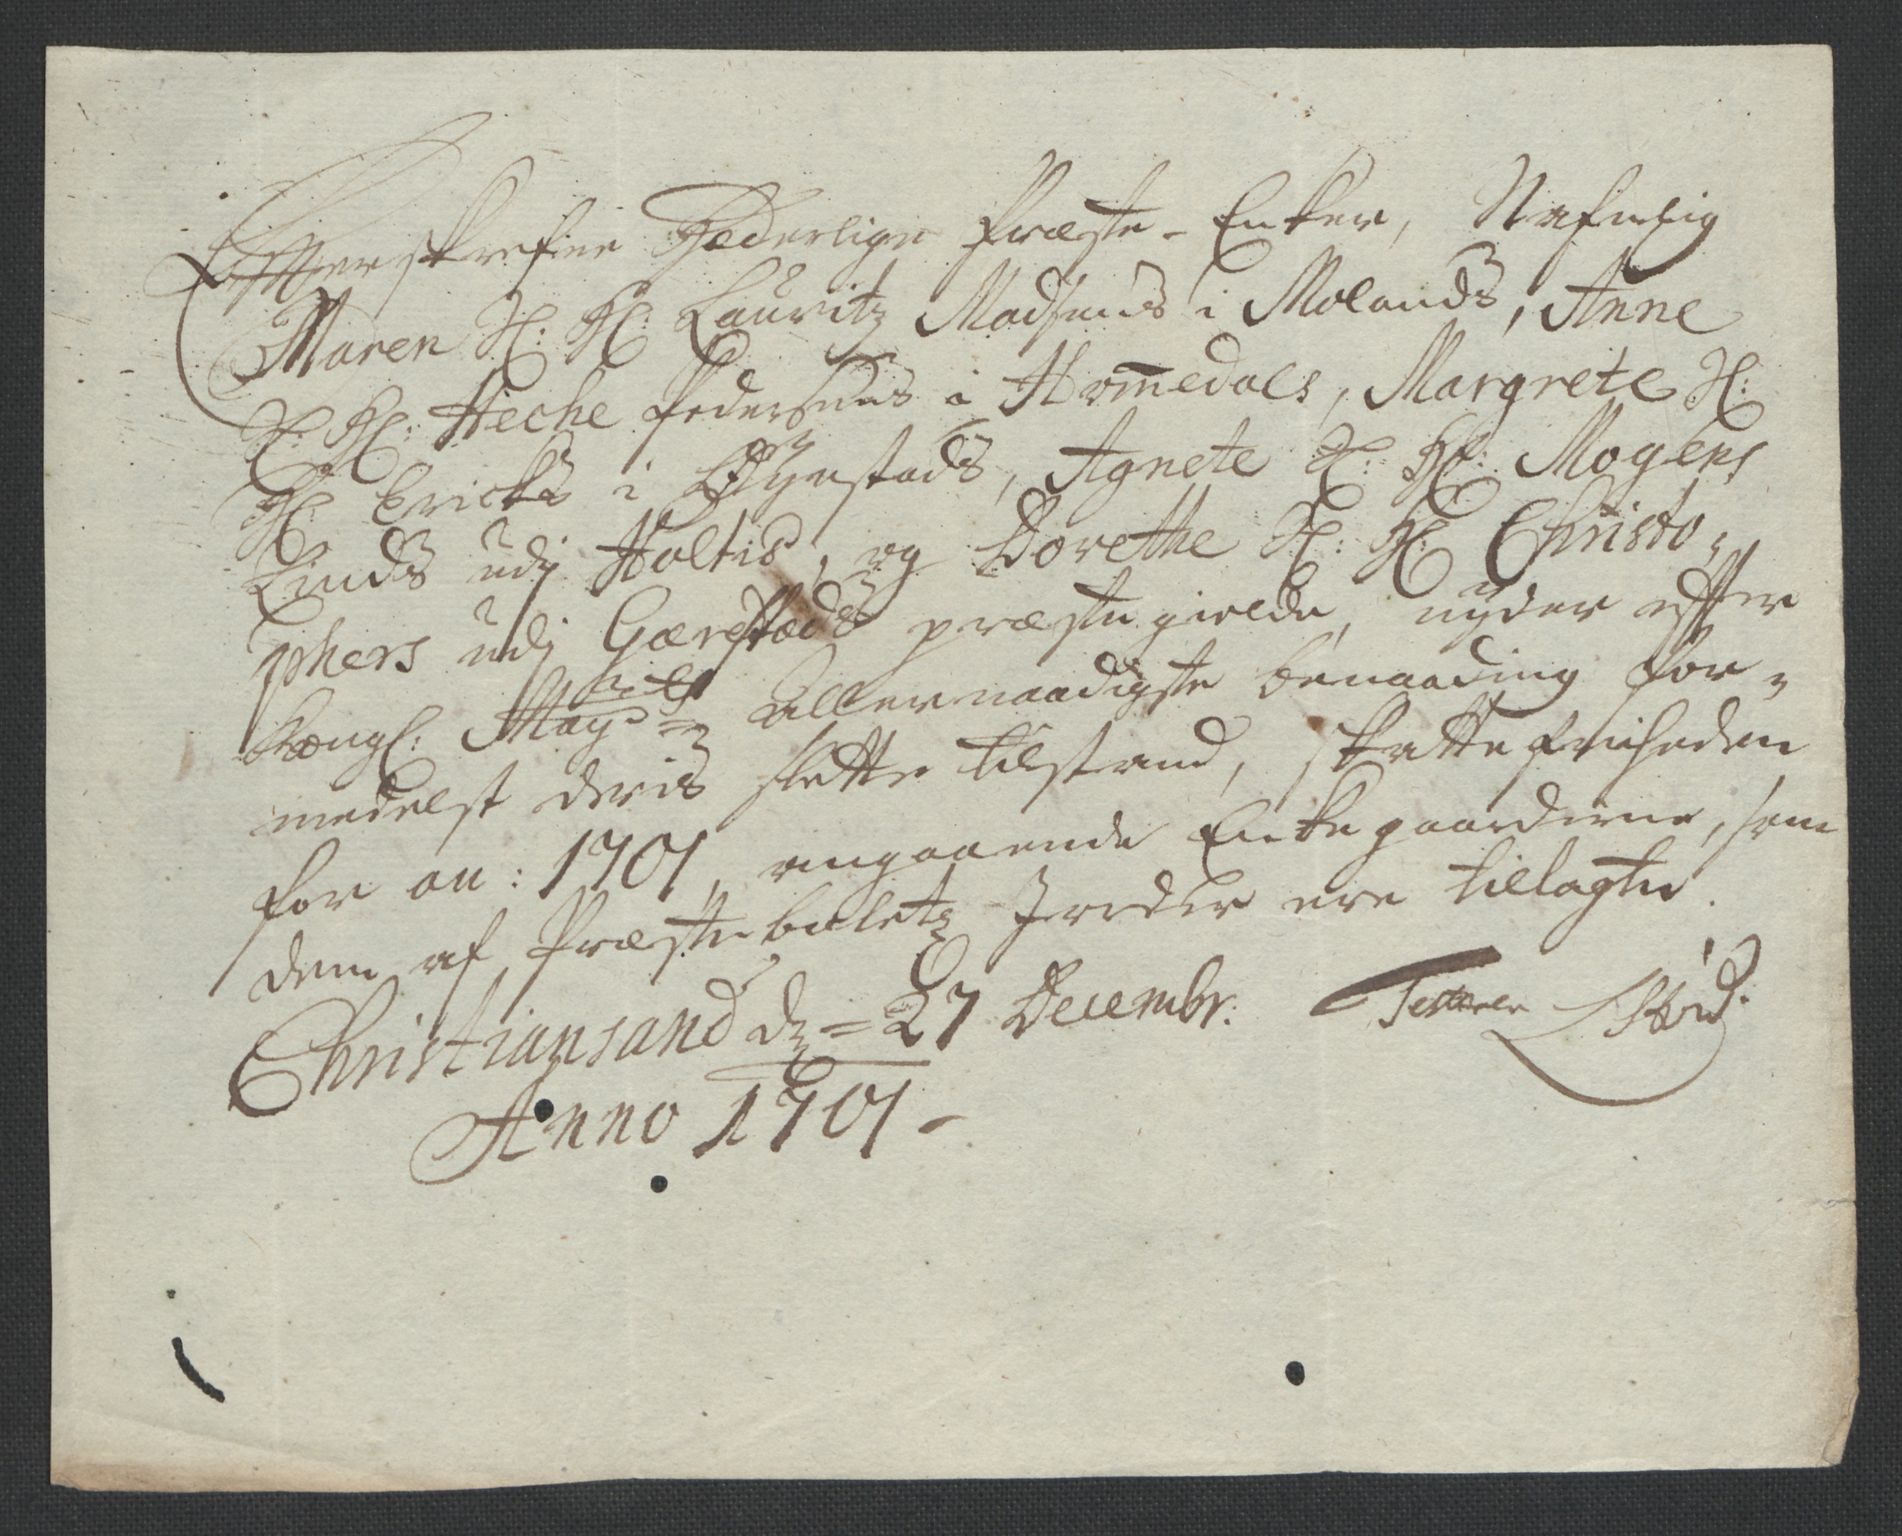 Effterskrefne Hæderlige Præste-Enker, Nafnlig
Maren H: H: Lauritz Madsens i Molands, Anne
H: H: Heche Pedersens i Hommedals, Margrete H:
H: Ericks i Øyestads, Agnete H: H: Mogens
Linds udj Holtis, og Dorethe H: H: Christo-
phers udj Gærestads præstegielde, nyder effter
Kongl: Mayts allernaadigste benaading for-
medelst deris slette tilstand, skattefriheden
for an: 1701, angaaende Enkegaarderne, som
dem af Præstebolets Jorder ere tillagte.
Christiansand d = 27 Decembr:
Anno 1701-